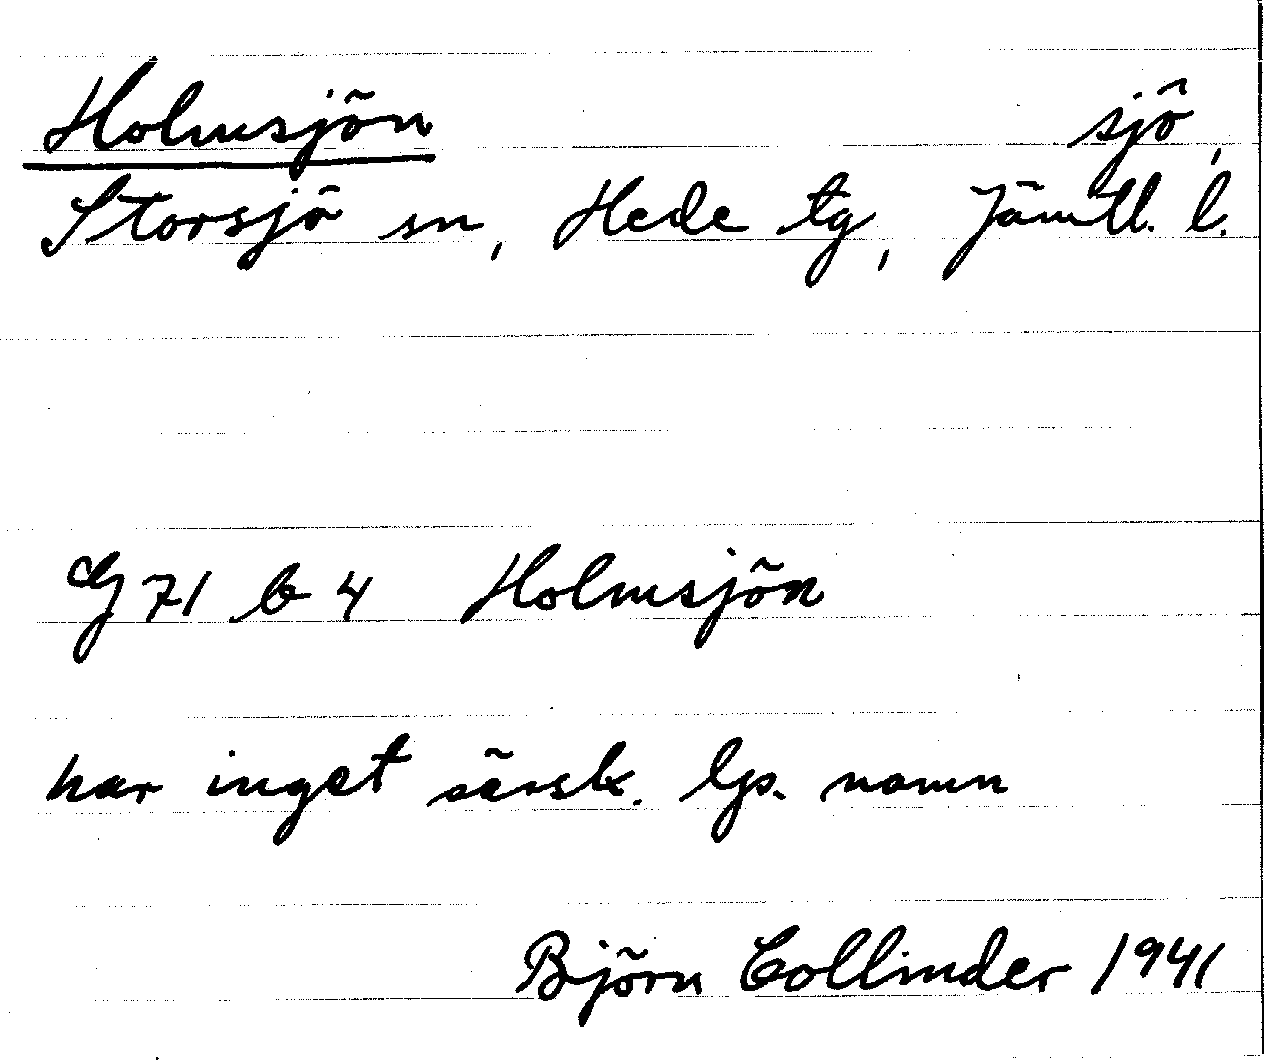 Holmsjön sjö,
Storsjö sn, Hede tg, Jämtl. l.
G 71 b 4 Holmsjön
har inget särsk. lp. namn
Björn Collinder 1941